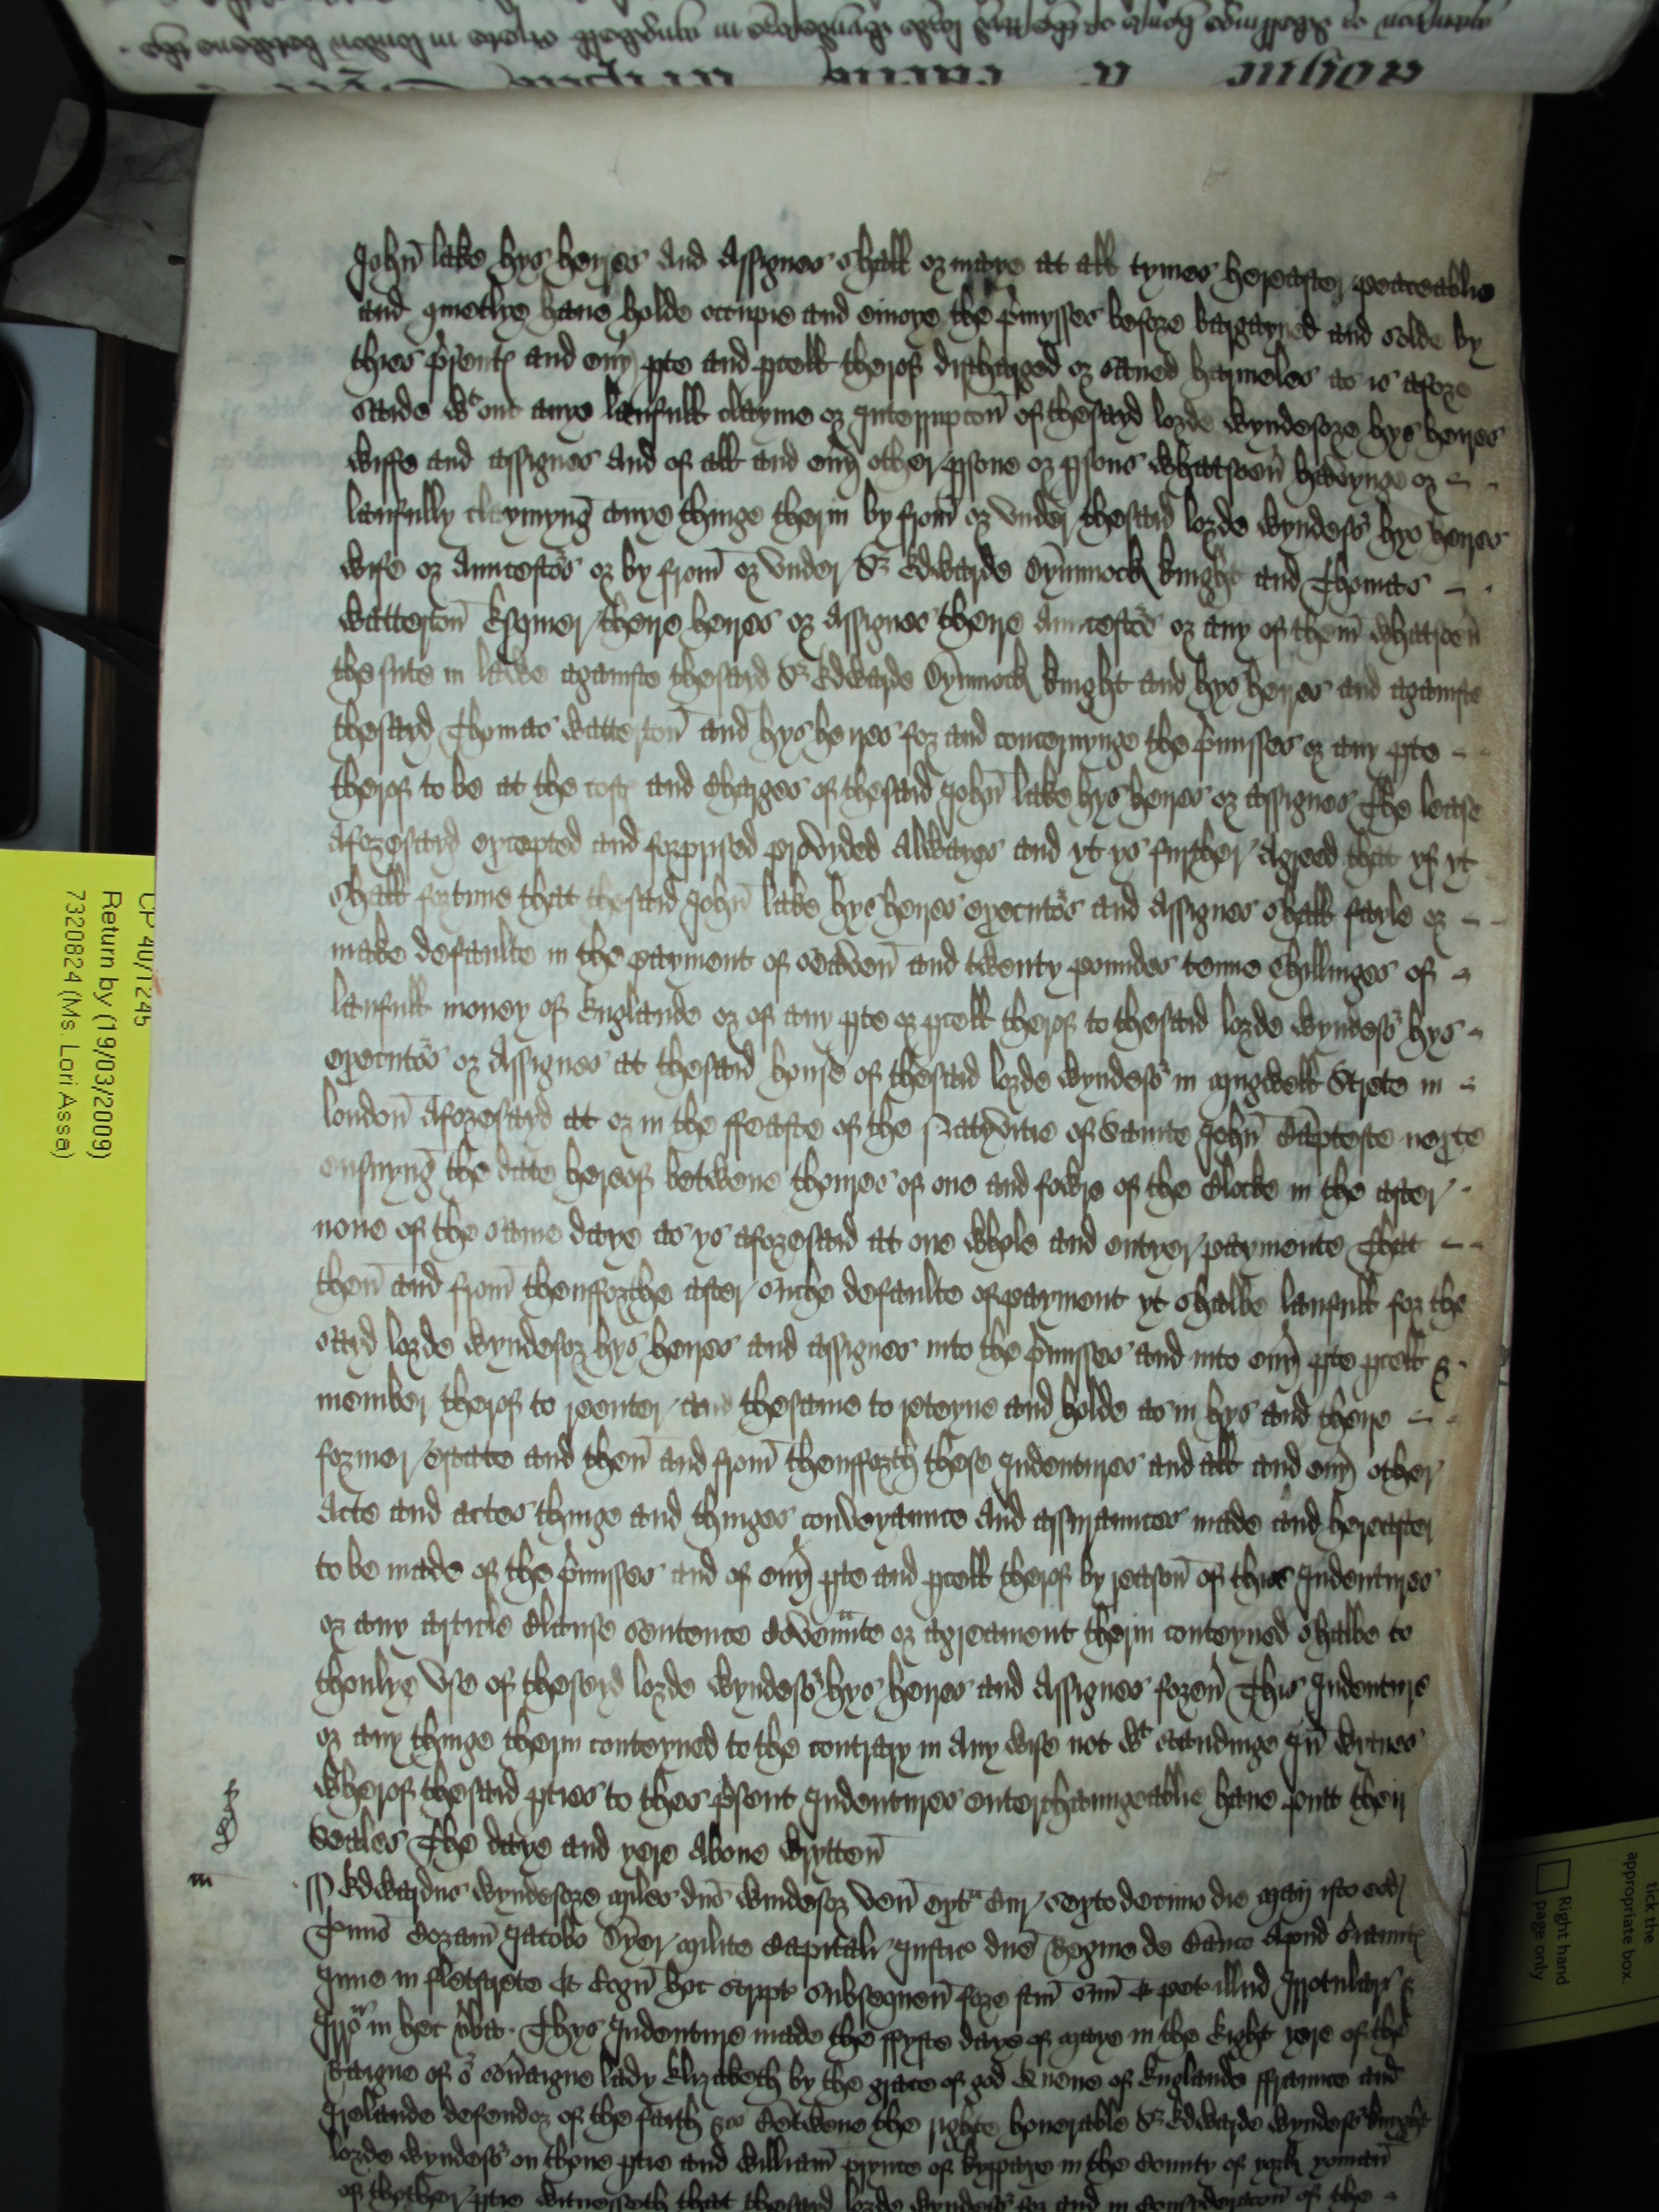 John lake hys heires And Assignes shall or maye at all tymes hereafter peaceablie
and quietlye have holde occupie and enioye the p̄mysses before bargayned and solde by
thies p̄sentꝭ and euy pte and pcell therof discharged or saued harmeles as is afore
saide wt out anye laufull clayme or Interrupcōn of thesayd lorde wyndesore hys heires
wiffe and assignes And of all and euy other psone or psons whatsoeū havynge or
laufully claymyng anye thinge therin by from or vnder thesaid lorde wyndesor hys heires
wife or Auncestors or by from or vnder Sr Edwarde Dymmock knight and Thomas
Watterton Esquier theire heires or Assignes theire Auncestors or any of them whatsoeū
the sute in lawe againste thesayd Sr Edwarde Dymmock knight and hys heires and againste
thesayd Thomas Watterton and hys heires for and concernynge the p̄misses or any pte
therof to be at the costꝭ and charges of thesaid John lake hys heires or assignes The lease
Aforesayd excepted and forprised provyded Alwayes and yt ys further Agreed that yf yt
shall fortune that thesaid John lake hys heires executors and Assignes shall fayle or
make defaulte in the payment of seaven and twenty poundes tenne shillinges of
laufull money of Englande or of any pte or pcell therof to thesaid lorde wyndesor hys
executors or Assignes at thesaid house of thesaid lorde wyndesor in mugwell Strete in
london Aforesayd at or in the ffeaste of the Natyvitie of Sainte John Bapteste nexte
ensuyng the date hereof betwene thoures of one and fowre of the Clocke in the after
none of the same daye as ys aforesaid at one whole and entyer paymente That
then and from thensforthe after suche defaulte of payment yt shalbe laufull for the
sayd lorde wyndesor hys heires and assignes into the p̄misses and into euy pte pcell &
member therof to reenter and thesame to reteyne and holde as in hys and theire
former estate and then and from thensforth these Indentures and all and euy other
Acte and actes thinge and thinges conveyaunce And assuraunces made and hereafter
to be made of the p̄misses and of euy pte and pcell therof by reason of thies Indentures
or any article Clause sentence Covenūte or agreament therin conteyned shalbe to
thonlye vse of thesayd lorde wyndesor hys heires and Assignes foreū This Indenture
or any thinge therin conteyned to the contrary in Any wise not wt standinge In wytnes
wherof thesaid pties to thes p̄sent Indentures enterchaungeablie have putt their
Seales The daye and yere Above wrytten
Edwardus wyndesore miles dn̄s windesor ven̄ cor sexto decimo die maij isto eod
Tmīo Coram Jacobo Dyer milite Capitali Justic dn̄e Regine de Banco Apud
Inne in fletstrete & Cogn̄ hoc script subsequen̄ fore fcm̄ suū & pet illud Irrotulari &
Irro in hec vba. Thys Indenture made the ffyrste daye of maye in the Eight yere of the
Raigne of or soūaigne lady Elizabeth by the grace of god Quene of Englande ffraunce and
Irelande defendor of the faith &c Betwene the righte honerable Sr Edwarde wyndesor knight
lorde wyndesor on thone ptie and William prynce of kyppaxe in the County of york yoman
of thother ptie witnesseth that thesaid lorde wyndesor for and in Consyderacōn of the
CP 40/1245
Return by (19/03/2009)
7320824 (Ms. Lori Assa)
tick the
appropriate box.
Right hand
page only